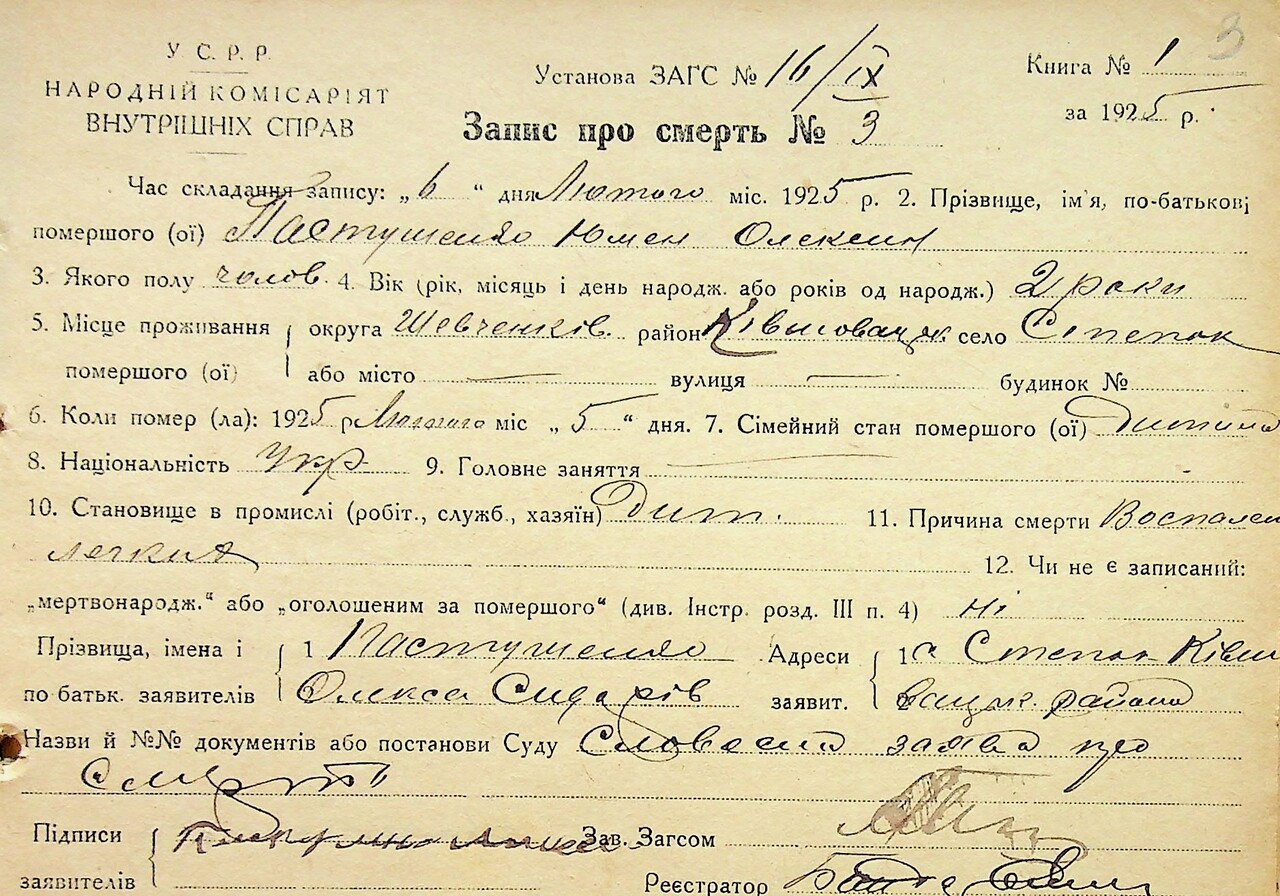 3
У С. Р. Р.
НАРОДНІЙ КОМІСАРІЯТ
ВНУТРІШНІХ СПРАВ
Установа ЗАГС № 16/IX
Книга № 1
за 1925 р.
Запис про смерть № 3
Час складання запису: „6“ дня Лютого міс. 1925 р. 2. Прізвище, ім'я, по-батькові
помершого (ої) Пастушенко Юмен Олексин
3. Якого полу чолов. 4. Вік (рік, місяць і день народж. або років од народж.) 2 роки
5. Місце проживання округа Шевченків. район Ківшовацьк. село Степок
помершого (ої) або місто — вулиця — будинок №
6. Коли помер (ла): 1925 р Лютого міс „5“ дня. 7. Сімейний стан помершого (ої) Дитина
8. Національність Укр. 9. Головне заняття —
10. Становище в промислі (робіт., служб., хазяїн) Дит. 11. Причина смерти Воспален
легких
12. Чи не є записаний:
„мертвонародж.“ або „оголошеним за помершого“ (див. Інстр. розд. III п. 4) ні
Прізвища, імена і 1 Пастушенко Адреси 1 с Степок Ківш
по батьк. заявителів Олекса Сидорів заявит. вацьк. району
Назви й №№ документів або постанови Суду Словесна заява про
смерть
Підписи
заявителів
Зав. Загсом
Реєстратор